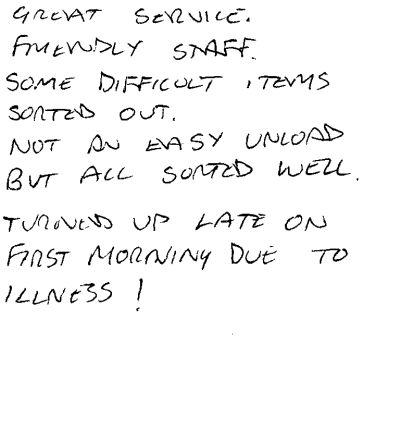 GREAT SERVICE.
FRIENDLY STAFF.
SOME DIFFICULT ITEMS
SORTED OUT.
NOT AN EASY UNLOAD
BUT ALL SORTED WELL.
TURNED UP LATE ON
FIRST MORNING DUE TO
ILLNESS !